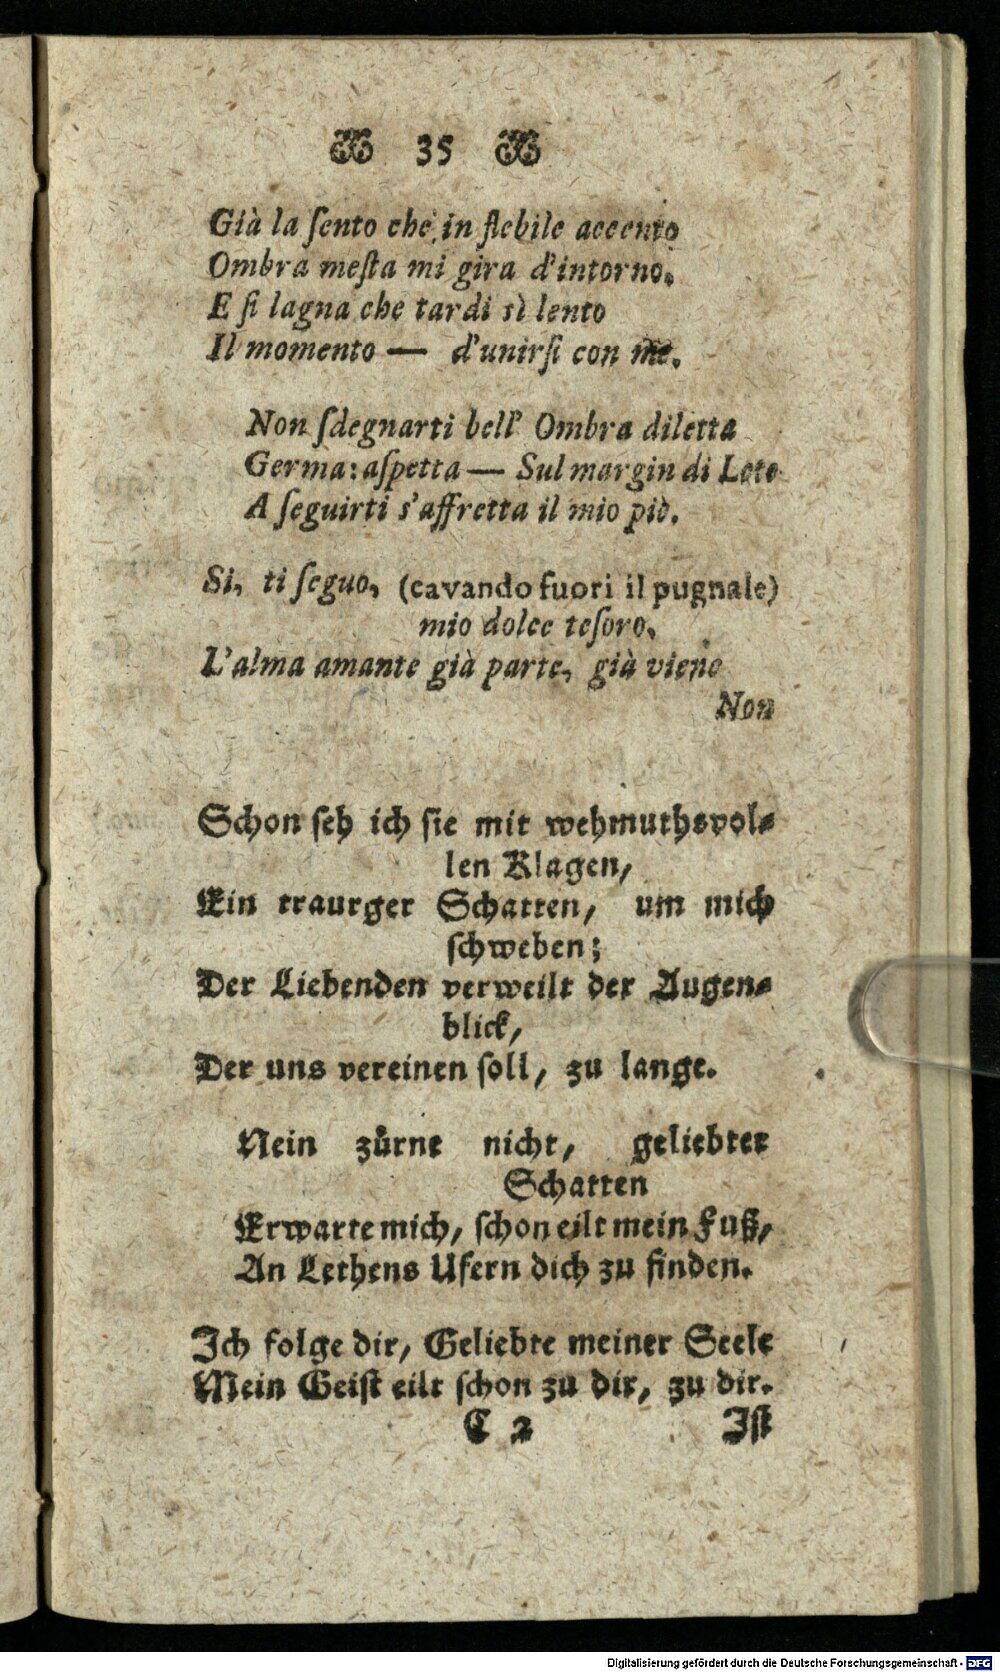 35
Già la ſento che in flebile accento
Ombra meſta mi gira d'intorno,
E ſi lagna che tardi sì lento
Il momento — d'unirſi con me.
Non ſdegnarti bell' Ombra diletta
Germa: aſpetta — Sul margin di Lete
A ſeguirti s'affretta il mio piè.
Si, ti ſeguo, (cavando fuori il pugnale)
mio dolce teſoro,
L'alma amante già parte, già viene
Non
Schon ſeh ich ſie mit wehmuthsvol-
len Klagen,
Ein traurger Schatten, um mich
ſchweben;
Der Liebenden verweilt der Augen-
blick,
Der uns vereinen ſoll, zu lange.
Nein zůrne nicht, geliebter
Schatten
Erwarte mich, ſchon eilt mein Fuß,
An Lethens Ufern dich zu finden.
Ich folge dir, Geliebte meiner Seele
Mein Geiſt eilt ſchon zu dir, zu dir.
C 2 Iſt
Digitalisierung gefördert durch die Deutsche Forschungsgemeinschaft - DFG